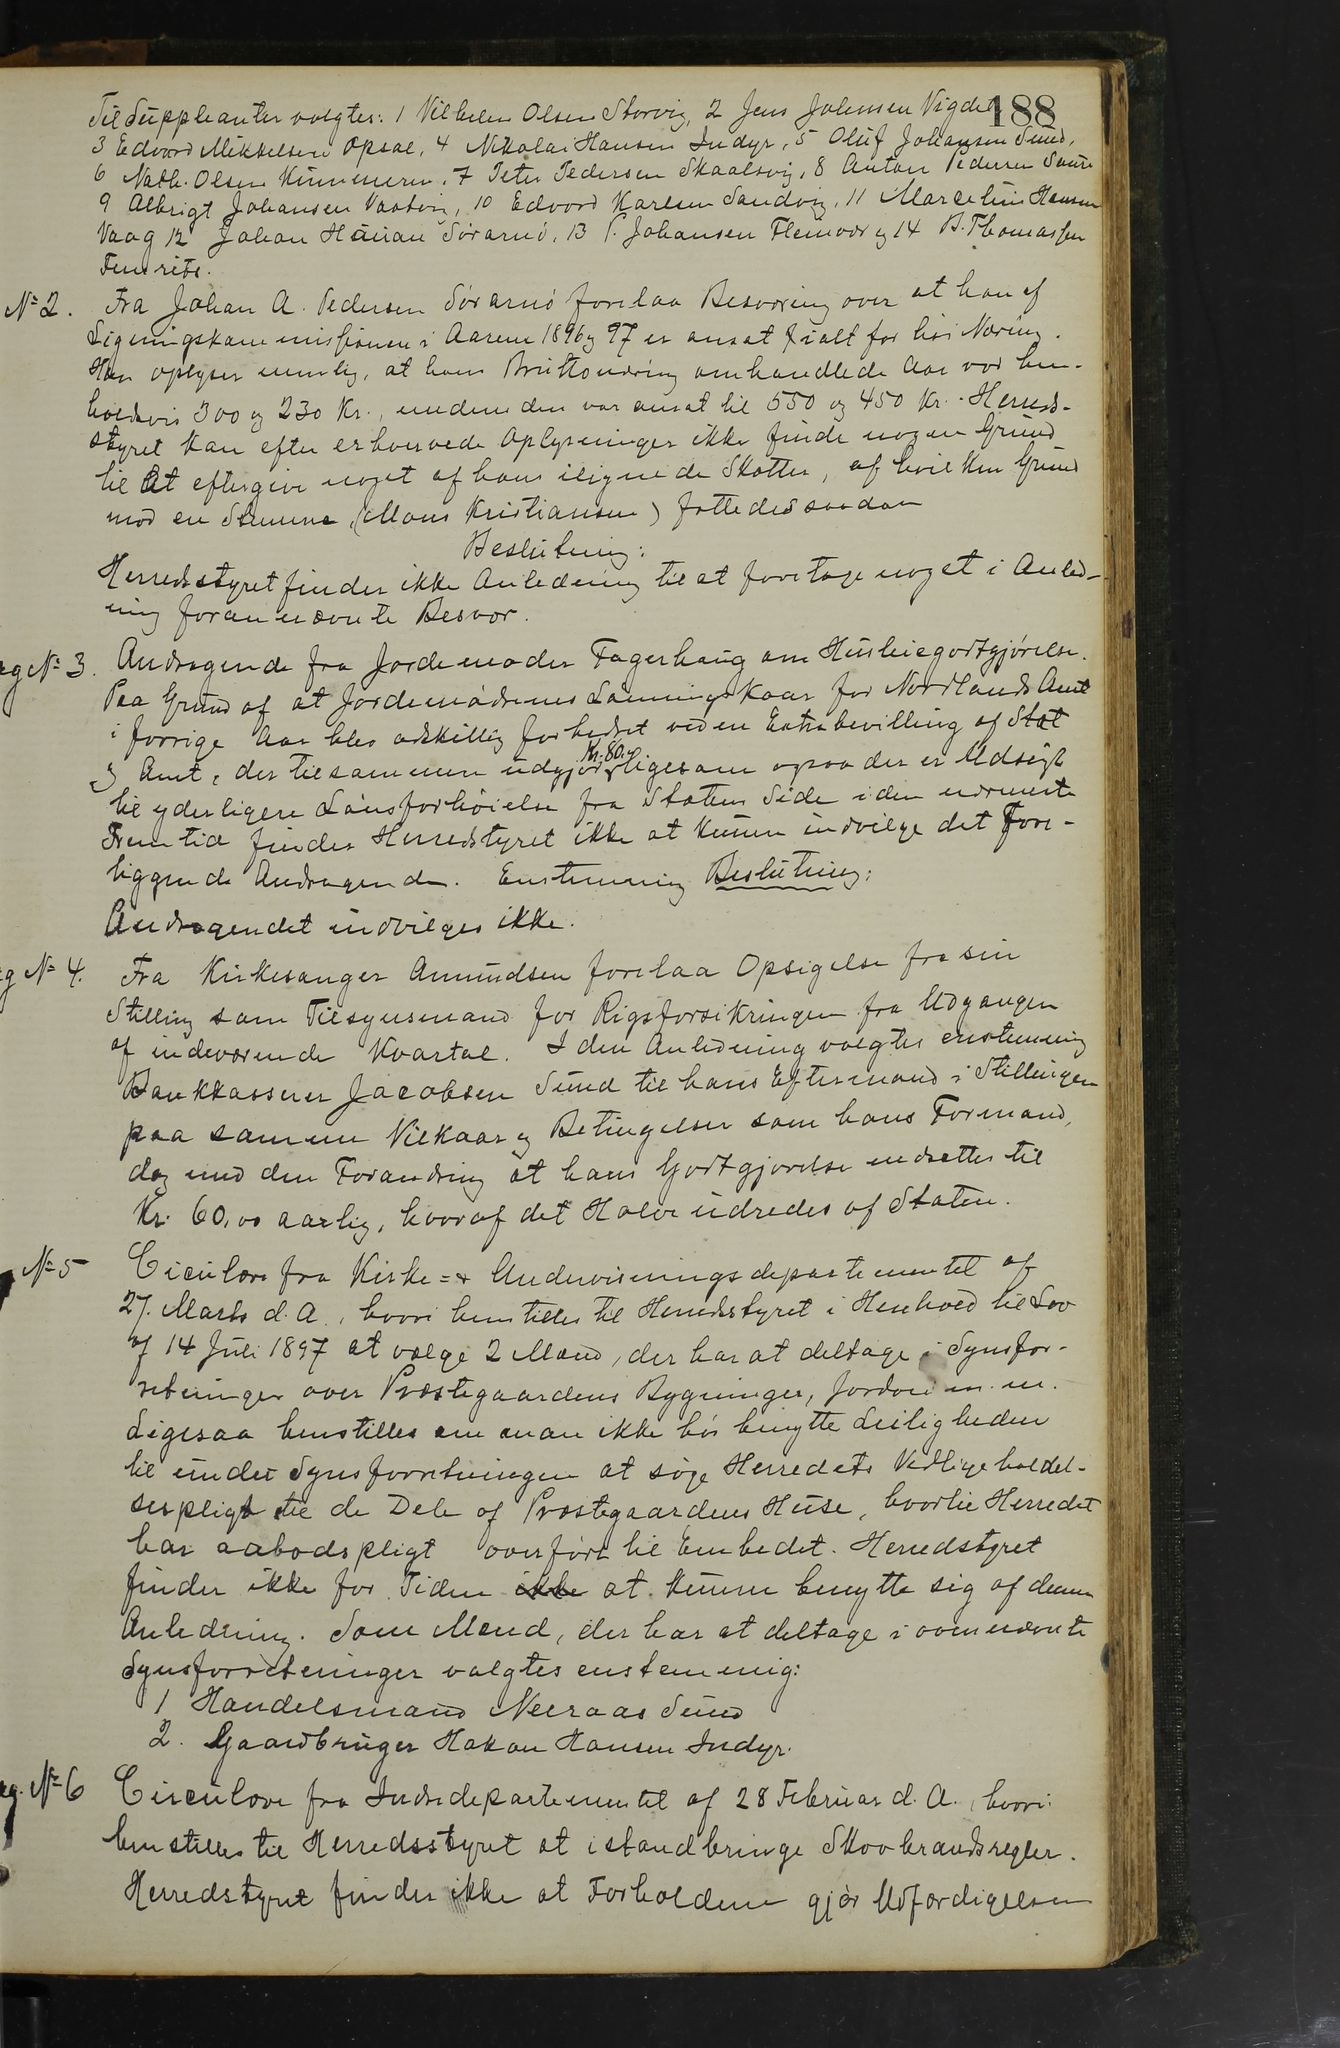 188
Til Suppleanter valgtes: 1 Vilhelm Olsen Storvig, 2 Jens Johnsen Vigdel
3 Edvard Mikkelsen Opsal, 4 Nikolai Hansen Indyr, 5 Oluf Johansen Sund,
6 Nath. Olsen 7 Peter Pedersen Skaalsvig, 8 Anton Pedersen
9 Albrigt Johansen 10 Edvard Karlsen Sandvig, 11 Marcelius Hansen
Vaag 12 Johan Hanan Sørarnø, 13 P. Johansen Flemvær og 14 B. Thomassen
Fenrits.
No 2. Fra Johan A. Pedersen Sørarnø forelaa Besværing over at han af
Ligningskommissionen i Aarene 1896 og 97 er ansat for høi Næring.
Han oplyser nemlig, at hans Bruttonæring omhandlede Aar var hen-
holdsvis 300 og 230 Kr., medens den var ansat til 550 og 450 Kr. Herreds-
styret kan efter erhvervede Oplysninger ikke finde nogen Grund
til at eftergive noget af hans ilignede Skatter, af hvilken Grund
mod en Stemme, (Mons Kristiansen) fattedes saadan
Beslutning:
Herredsstyret finder ikke Anledning til at foretage noget i Anled-
ning forannævnte Besvær.
Sag No 3. Andragende fra Jordemoder Fagerhaug om Husleiegodtgjørelse.
Paa Grund af at Jordemødrenes Lønningskaar for Nordlands Amt
i forrige Aar blev adskillig forbedret ved en Extrabevilling af Stat
og Amt, der tilsammen udgjør Kr. 80.00 ligesom ogsaa der er Udsigt
til yderligere Lønsforhøielse fra Statens Side i den nærmeste
Fremtid finder Herredstyret ikke at kunne indvilge det fore-
liggende Andragende. Enstemmig Beslutning:
Andragendet indvilges ikke.
Sag No 4. Fra Kirkesanger Amundsen forelaa Opsigelse fra sin
Stilling som Tilsynsmand for Rigsforsikringen fra Udgangen
af indeværende Kvartal. I den Anledning valgtes enstemmig
Bankkasserer Jacobsen Sund til hans Eftermand i Stillingen
paa samme Vilkaar og Betingelser som hans Formand,
dog med den Forandring at hans Godtgjørelse nedsættes til
Kr. 60,00 aarlig, hvoraf det Halve udredes af Staten.
No 5 Circulære fra Kirke- & Undervisningsdepartementet af
27. Marts d. A., hvori henstilles til Herredsstyret i Henhold til Lov
af 14 Juli 1897 at vælge 2 Mænd, der har at deltage i Synsfor-
retninger over Præstegaardens Bygninger, Jordvei m. m.
Ligesaa henstilles om man ikke bør benytte Leiligheden
til under Synsforretningen at søge Herredets Vedligeholdel-
sespligt til de Dele af Præstegaardens Huse, hvortil Herredet
har aabodspligt overført til Embedet. Herredstyret
finder ikke for Tiden ikke at kunne benytte sig af denne
Anledning. Som Mænd, der har at deltage i ovennævnte
Synsforretninger valgtes enstemmig:
1 Handelsmand Neeraas Sund
2. Gaardbruger Hakon Hansen Indyr.
Sag. No 6 Circulære fra Indredepartementet af 28 Februar d. A., hvori
henstilles til Herredsstyret at istandbringe Skovbrandsregler.
Herredstyret finder ikke at Forholdene gjør Udfærdigelsen